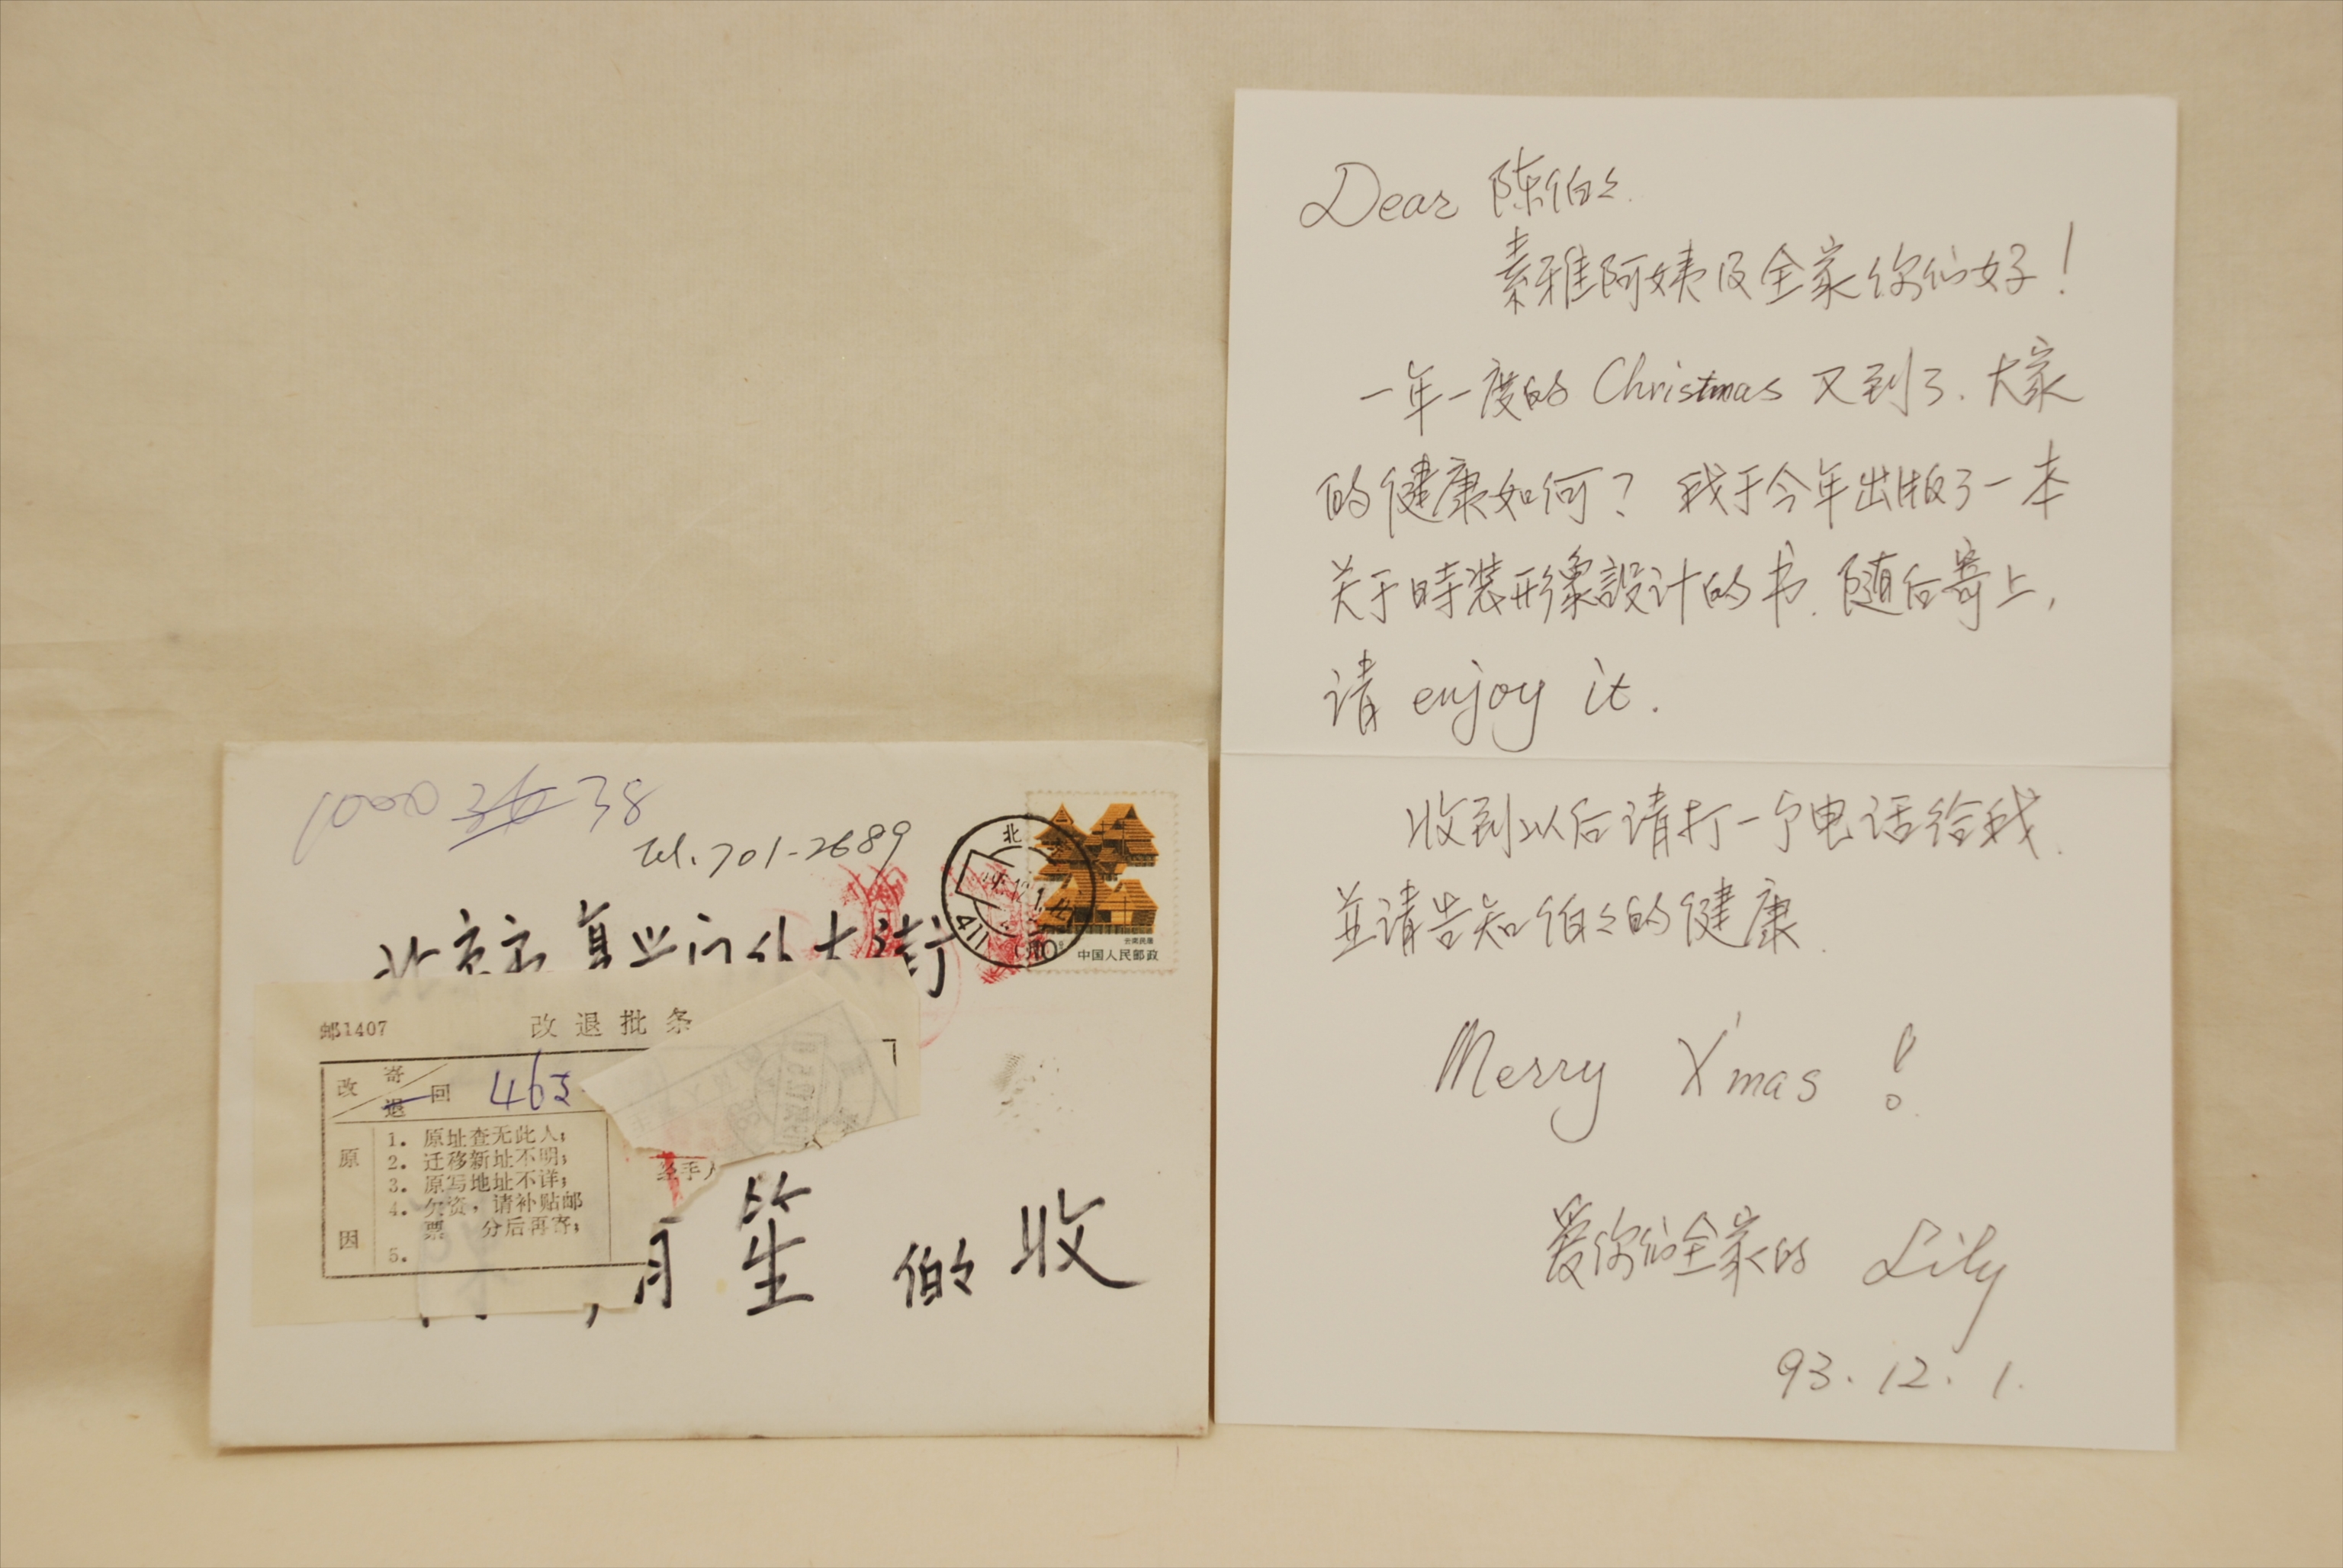 1000036 38
Tel. 701-2689
北京市复兴门外大街
北京
中国人民邮政
邮1407 改退批条
改 寄
退 回 463
原
因
1. 原址查无此人；
2. 迁移新址不明；
3. 原写地址不详；
4. 欠资，请补贴邮
票 分后再寄；
5.
经手人
笙 伯伯 收
Dear 陈伯々.
素雅阿姨及全家你们好！
一年一度的 Christmas 又到了. 大家
的健康如何？ 我于今年出版了一本
关于時装形象設计的书. 随后寄上,
请 enjoy it.
收到以后请打一个电话给我.
並请告知伯々的健康.
Merry X'mas !
爱你们全家的 Lily
93. 12. 1.